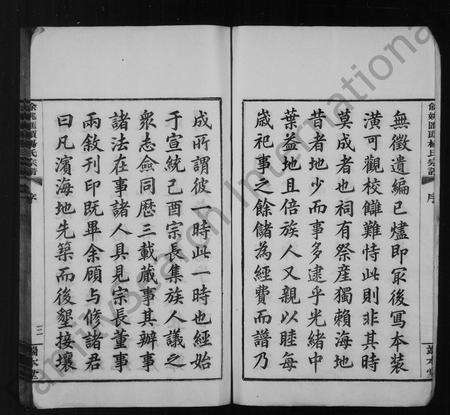 無徵遺編已燼即冢後寫本裝
潢可觀校讎難恃此則非其時
莫成者也祠有祭產獨賴海地
昔者地少而事多逮乎光緒中
葉益地且倍族人又親以睦每
歲祀事之餘儲為經費而譜乃
成所謂彼一時此一時也經始
于宣統己酉宗長集族人議之
衆志僉同歷三載蕆事其辦事
諸法在事諸人具見宗長董事
兩敘刊印既畢余顧與修諸君
曰凡濱海地先築而後墾接壤
序
序
三
FamilySearch International